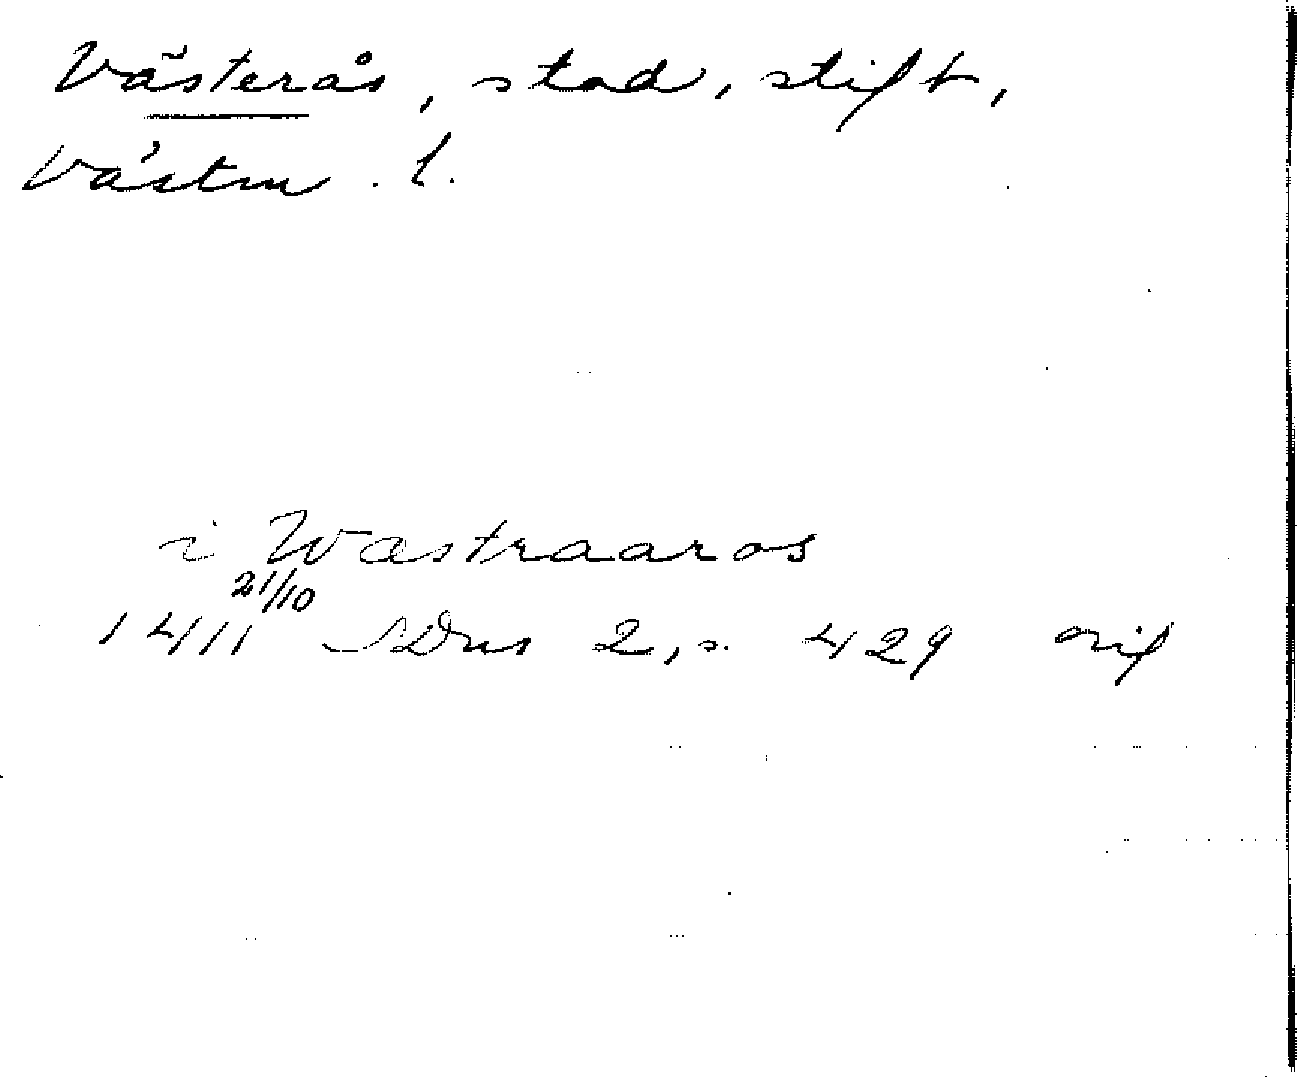 Västerås, stad, stift,
Västm. l.
i Wæstraaros
21/10
1411 SDns 2, s. 429 orig